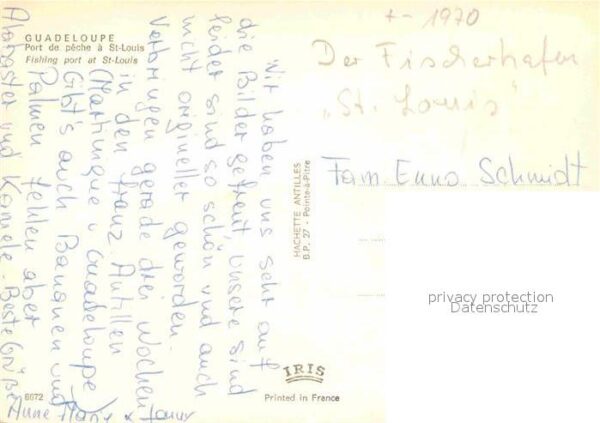 GUADELOUPE
Port de pêche à St-Louis
Fishing port at St-Louis
Wir haben uns sehr auf
die Bilder gefreut, unsere sind
leider sind so schön und auch
nicht origineller geworden.
Verbringen gerade drei Wochen
in den franz. Antillen
(Martinique u Guadeloupe)
Gibt's auch Bananen und
Palmen fehlen aber
Alabaster und Kamele. Beste Grüße
Anne Marie &
6672
HACHETTE ANTILLES
B.P. 27 - Pointe-à-Pitre
IRIS
Printed in France
+- 1970
Der Fischerhafen
„St. Louis"
Fam. Enno Schmidt
privacy protection
Datenschutz